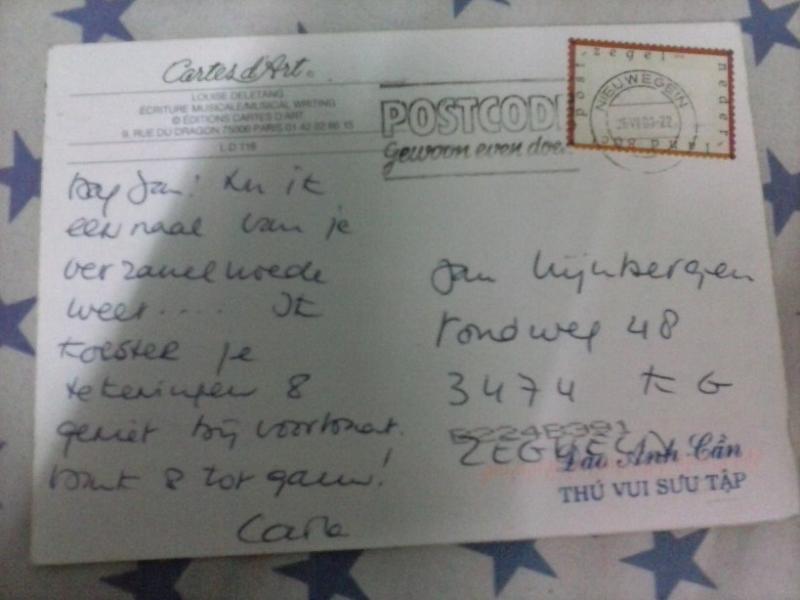 Cartes d'Art ©
LOUISE DELETANG
ECRITURE MUSICALE/MUSICAL WRITING
© EDITIONS CARTES D'ART
9, RUE DU DRAGON 75006 PARIS 01 42 22 86 15
L D 116
POSTCODE
gewoon even doe
post zegel nederland
NIEUWEGEIN
Dag Jan! Nu ik
eenmaal van je
verzamelwoede
weet.... Ik
koester je
tekeningen &
geniet bij voorbaat.
Dank & tot gauw!
Carla
Jan
rondweg 48
3474 KG
ZEGVELD
Đào Anh Cần
THÚ VUI SƯU TẬP